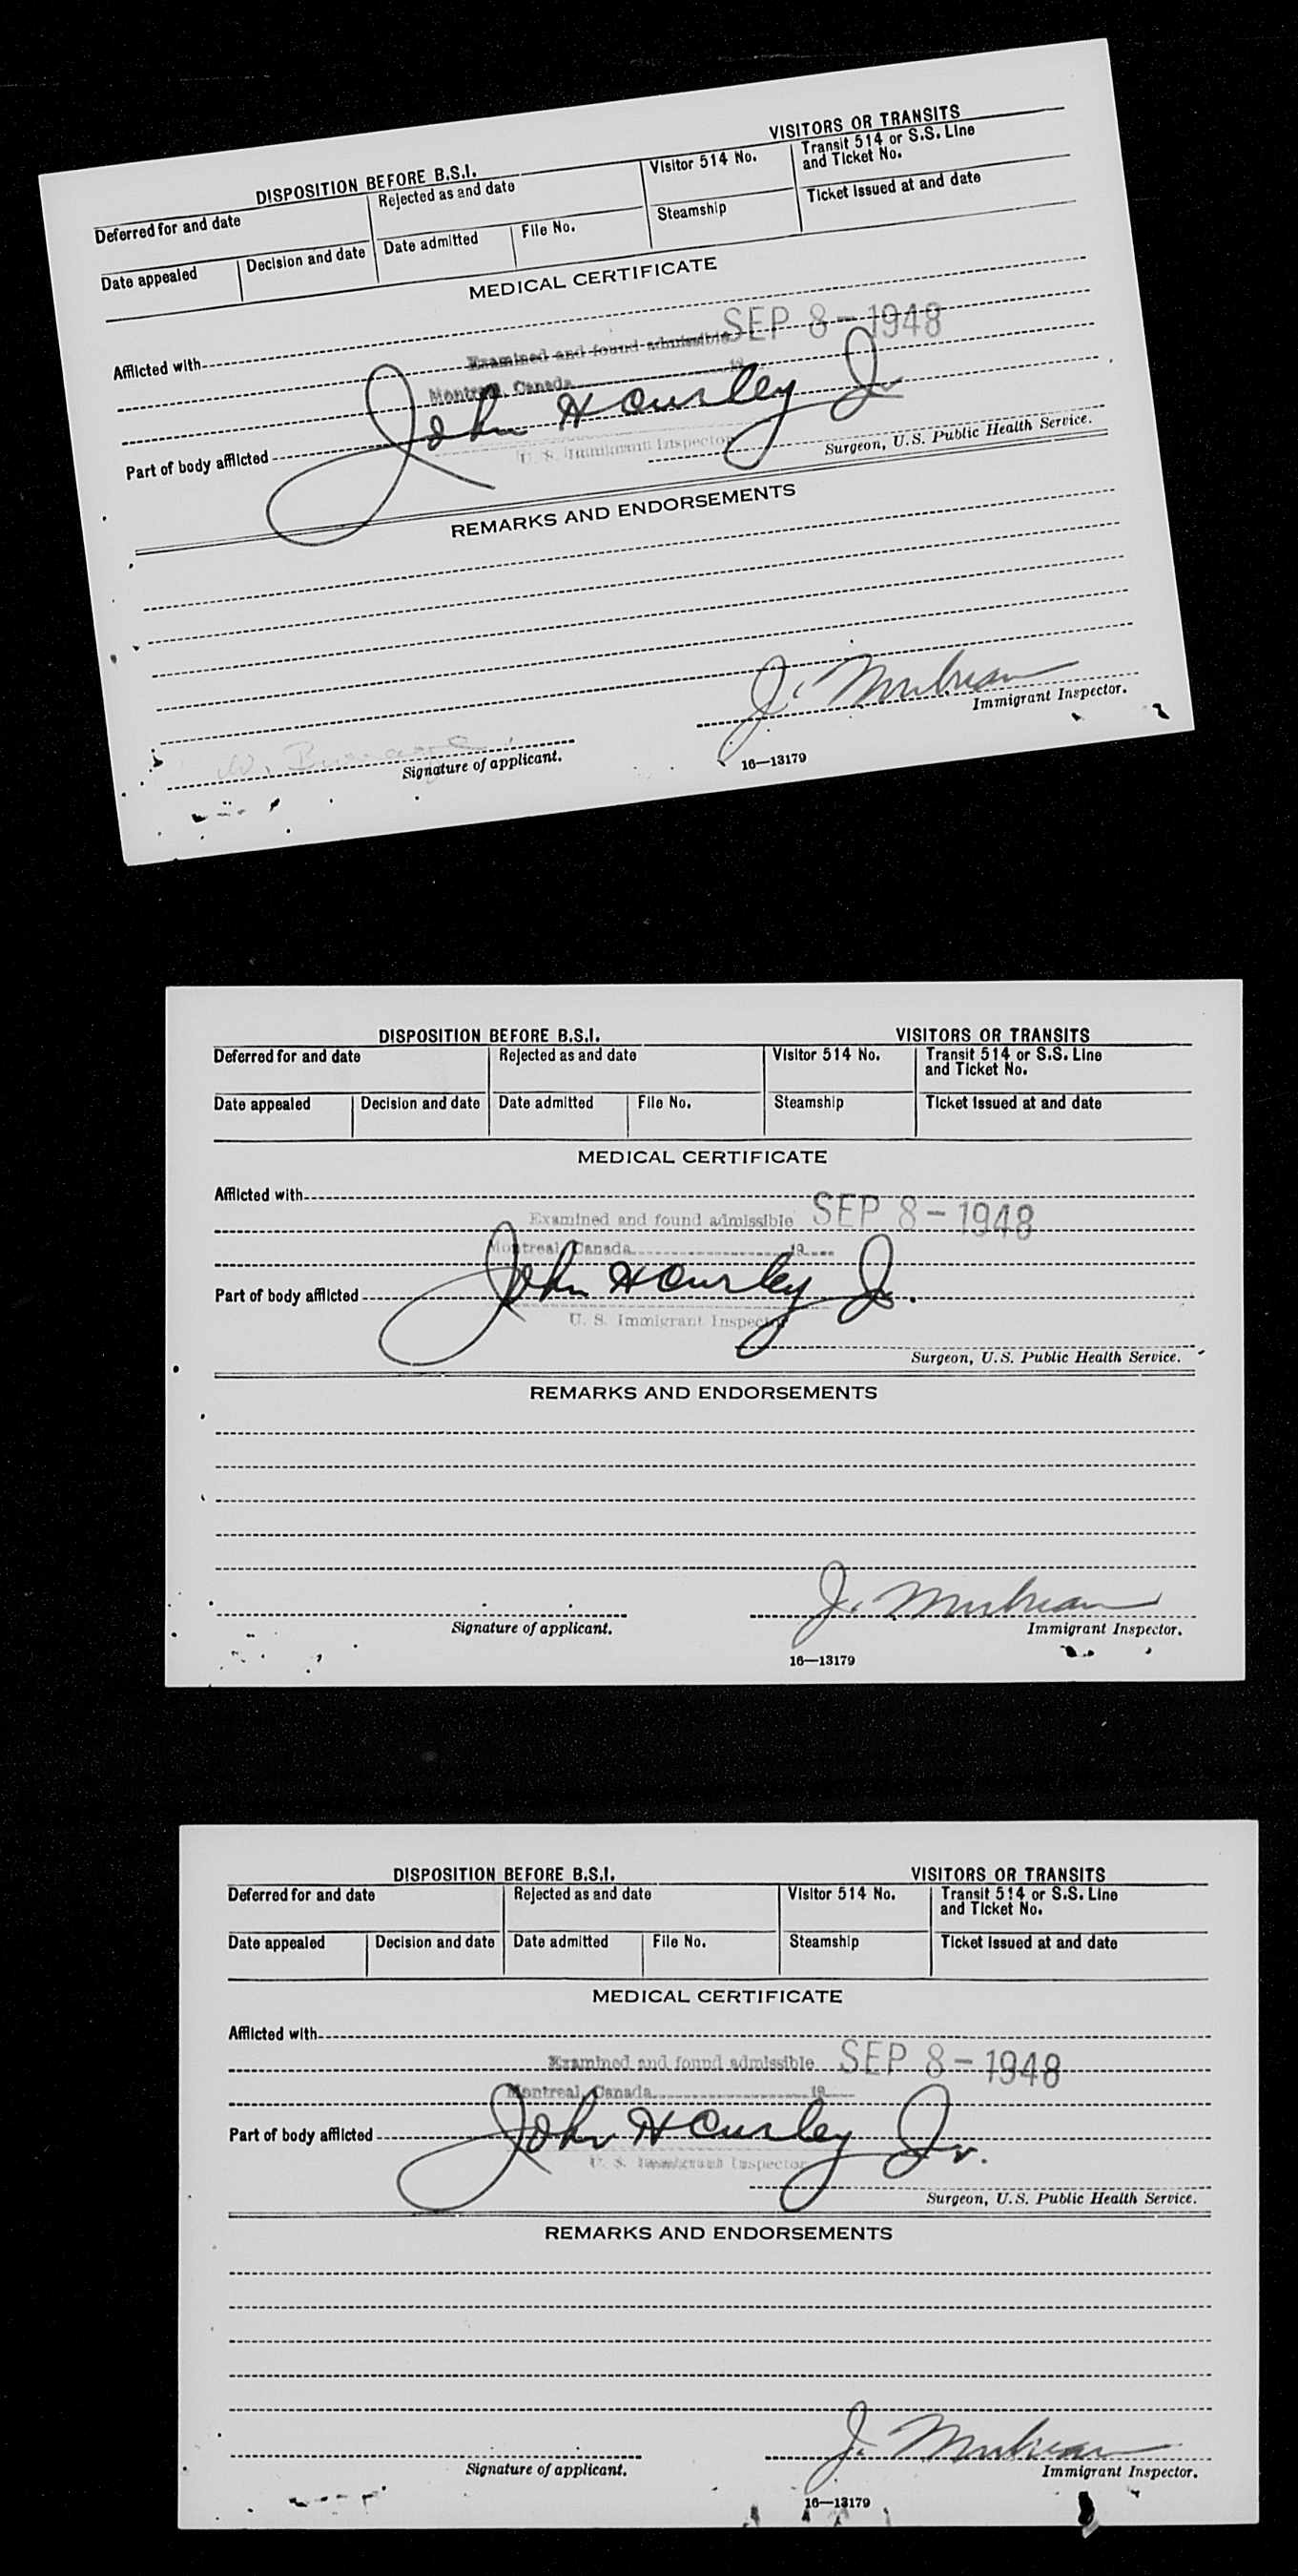 DISPOSITION BEFORE B.S.I. VISITORS OR TRANSITS
Deferred for and date Rejected as and date Visitor 514 No. Transit 514 or S.S. Line and Ticket No.
Date appealed Decision and date Date admitted File No. Steamship Ticket issued at and date
MEDICAL CERTIFICATE
Afflicted with
Examined and found admissible SEP 8 - 1948
Montreal, Canada 19
Part of body afflicted John Hourley Jr
U. S. Immigrant Inspector
Surgeon, U.S. Public Health Service.
REMARKS AND ENDORSEMENTS
J.
Signature of applicant. Immigrant Inspector.
16—13179
DISPOSITION BEFORE B.S.I. VISITORS OR TRANSITS
Deferred for and date Rejected as and date Visitor 514 No. Transit 514 or S.S. Line and Ticket No.
Date appealed Decision and date Date admitted File No. Steamship Ticket issued at and date
MEDICAL CERTIFICATE
Afflicted with
Examined and found admissible SEP 8 - 1948
Montreal, Canada 19
Part of body afflicted John Hourley Jr.
U. S. Immigrant Inspector
Surgeon, U.S. Public Health Service.
REMARKS AND ENDORSEMENTS
J.
Signature of applicant. Immigrant Inspector.
16—13179
DISPOSITION BEFORE B.S.I. VISITORS OR TRANSITS
Deferred for and date Rejected as and date Visitor 514 No. Transit 514 or S.S. Line and Ticket No.
Date appealed Decision and date Date admitted File No. Steamship Ticket issued at and date
MEDICAL CERTIFICATE
Afflicted with
Examined and found admissible SEP 8 - 1948
Montreal, Canada 19
Part of body afflicted John Hourley Jr.
U. S. Immigrant Inspector
Surgeon, U.S. Public Health Service.
REMARKS AND ENDORSEMENTS
J.
Signature of applicant. Immigrant Inspector.
16—13179